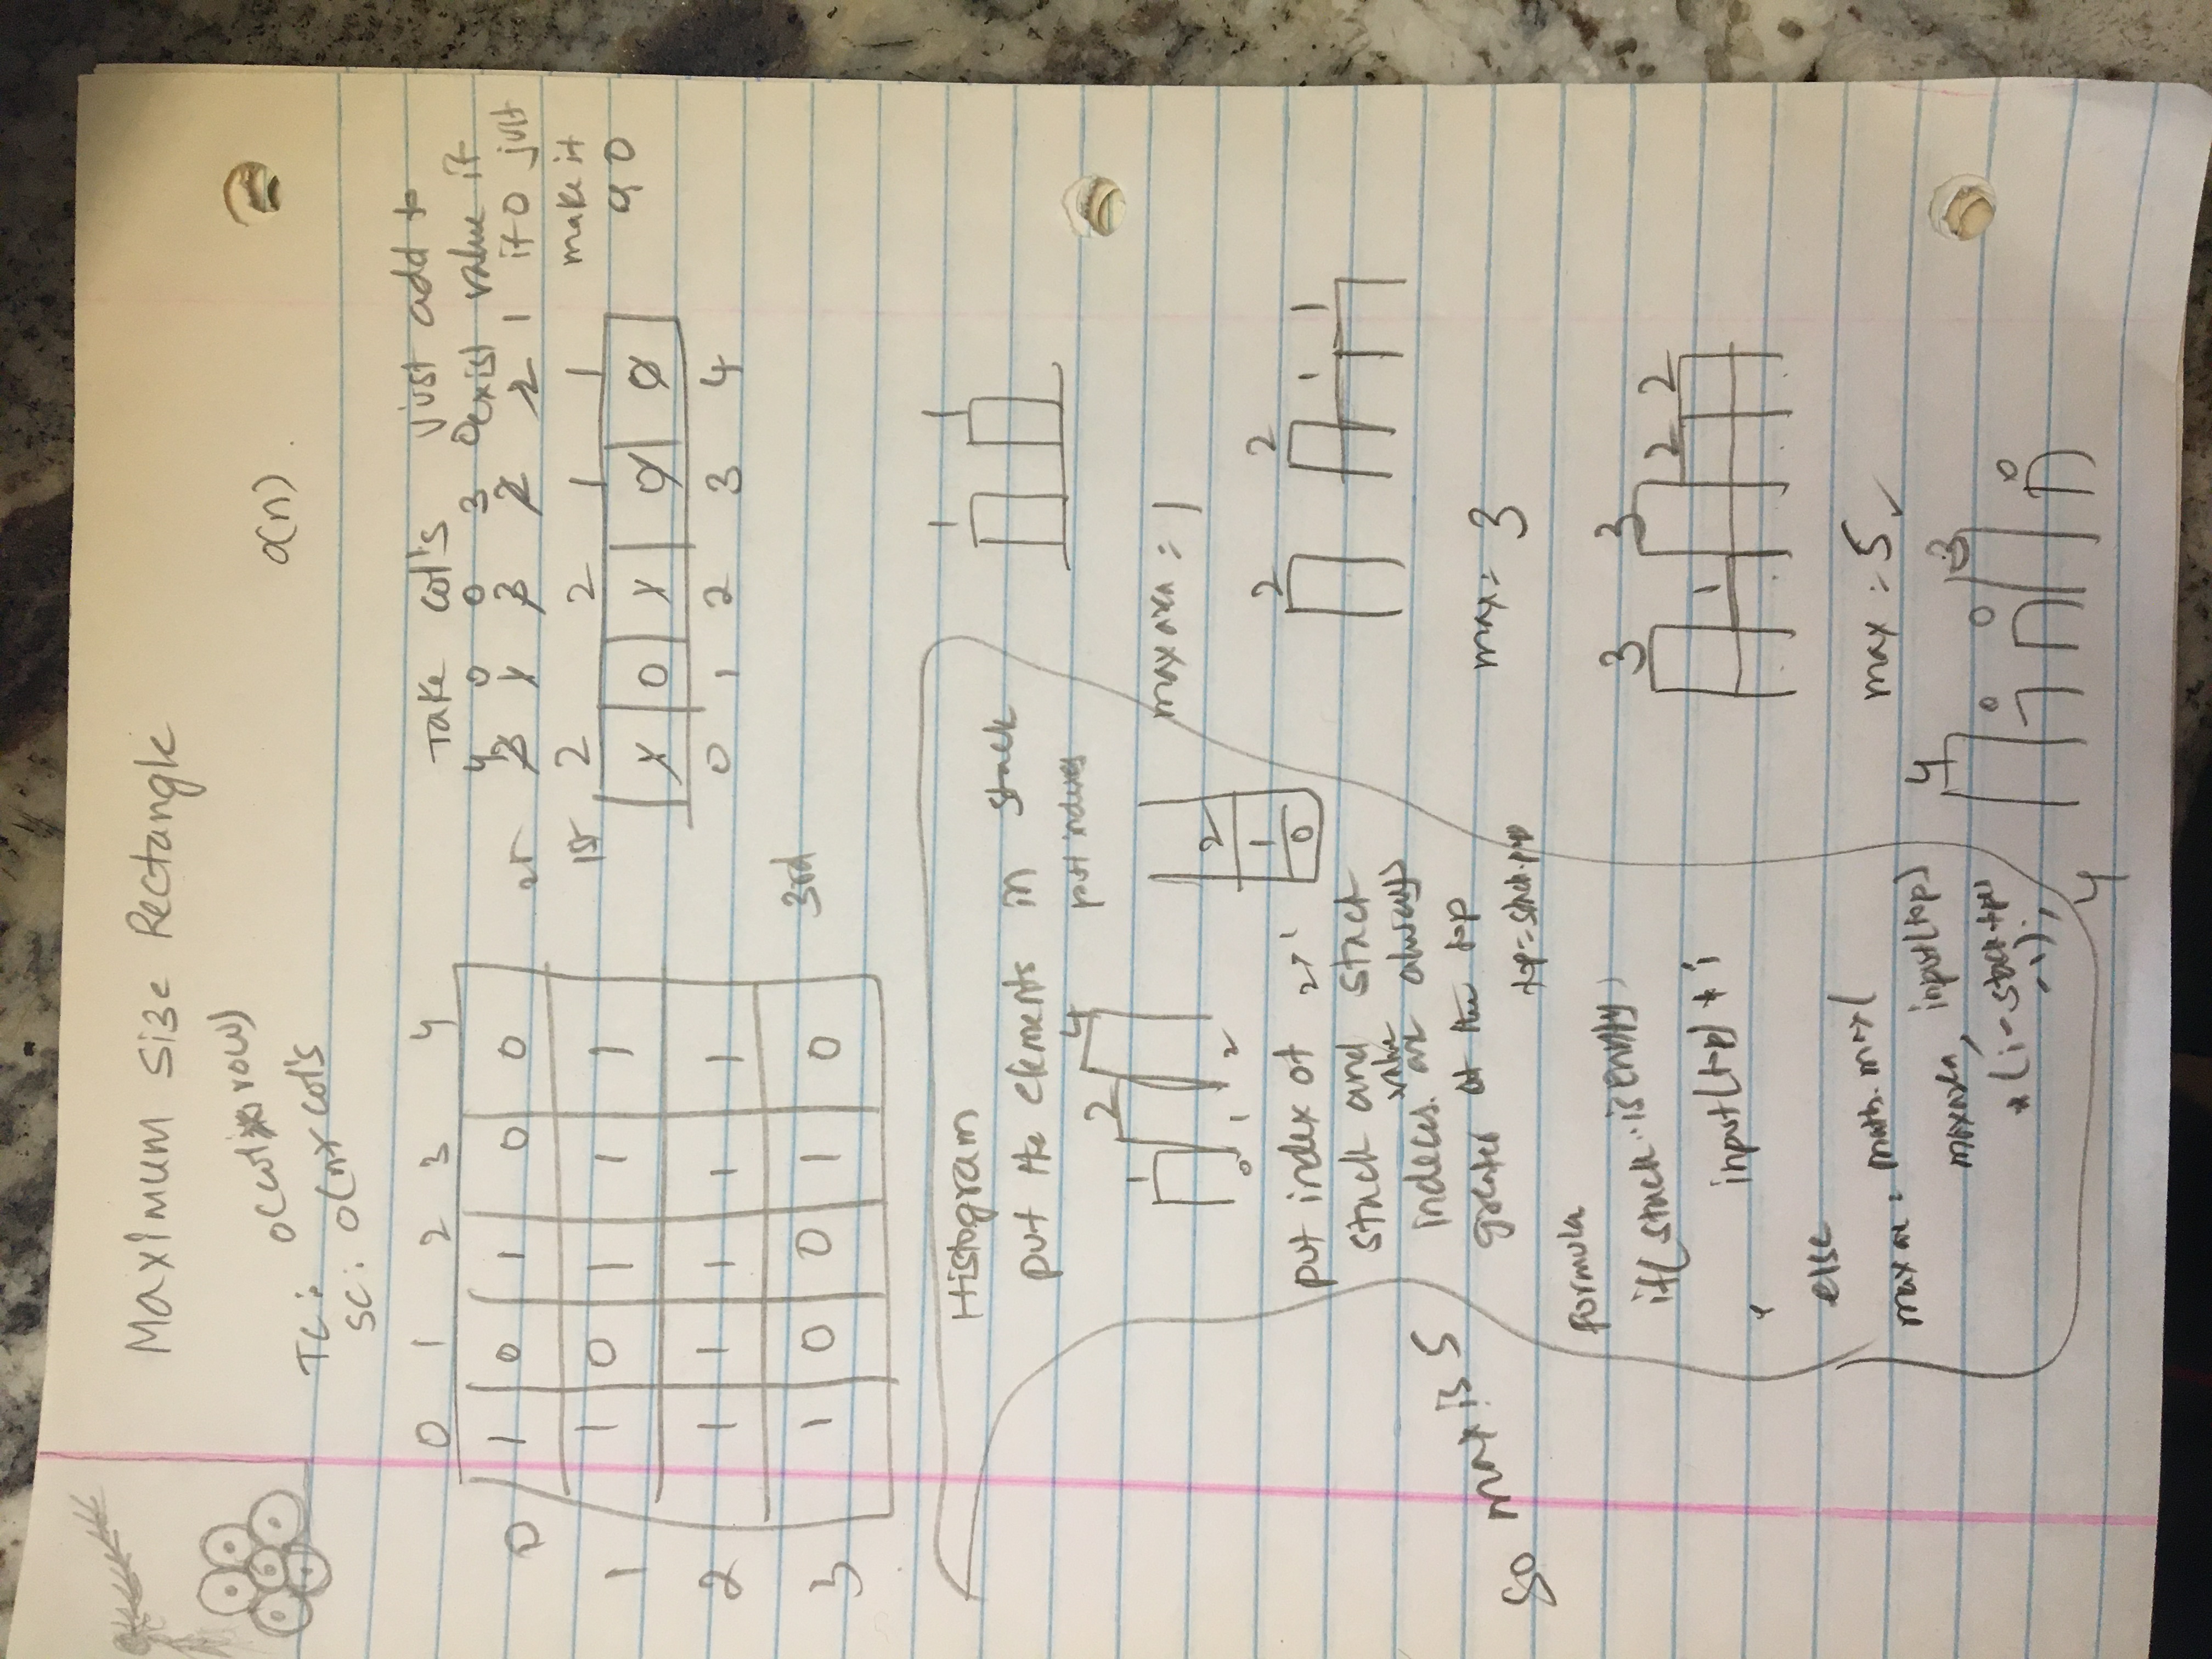 Maximum Size Rectangle
TC: O(col's x row)
O(n).
SC: O(n x col's
0 1 2 3 4
0 1 0 1 0 0
1 1 0 1 1 1
2 1 1 1 1 1
3 1 0 0 1 0
Take col's just add to
4 0 0 3 0 exist value if
3 1 3 2 2 1 if 0 just
1st 2 2 1 1 make it
a 0
1 0 1 0 0
0 1 2 3 4
3rd
Histogram
put the elements in stack
put indexes
1 2 4
0 1 2
2
1
0
put index of 2>1
stack and stack
indeces. value are always
greater at the top
top = stack.pop
formula
if( stack..isEmpty)
input[top] * i
else
maxare = math.max(
maxarea, input[top]
* (i - stack.top
-1);
So max is 5
1 1
max area = 1
2 2 1 1
max = 3
3 1 3 2 2
max = 5 ✓
4 0 0 3 0
4